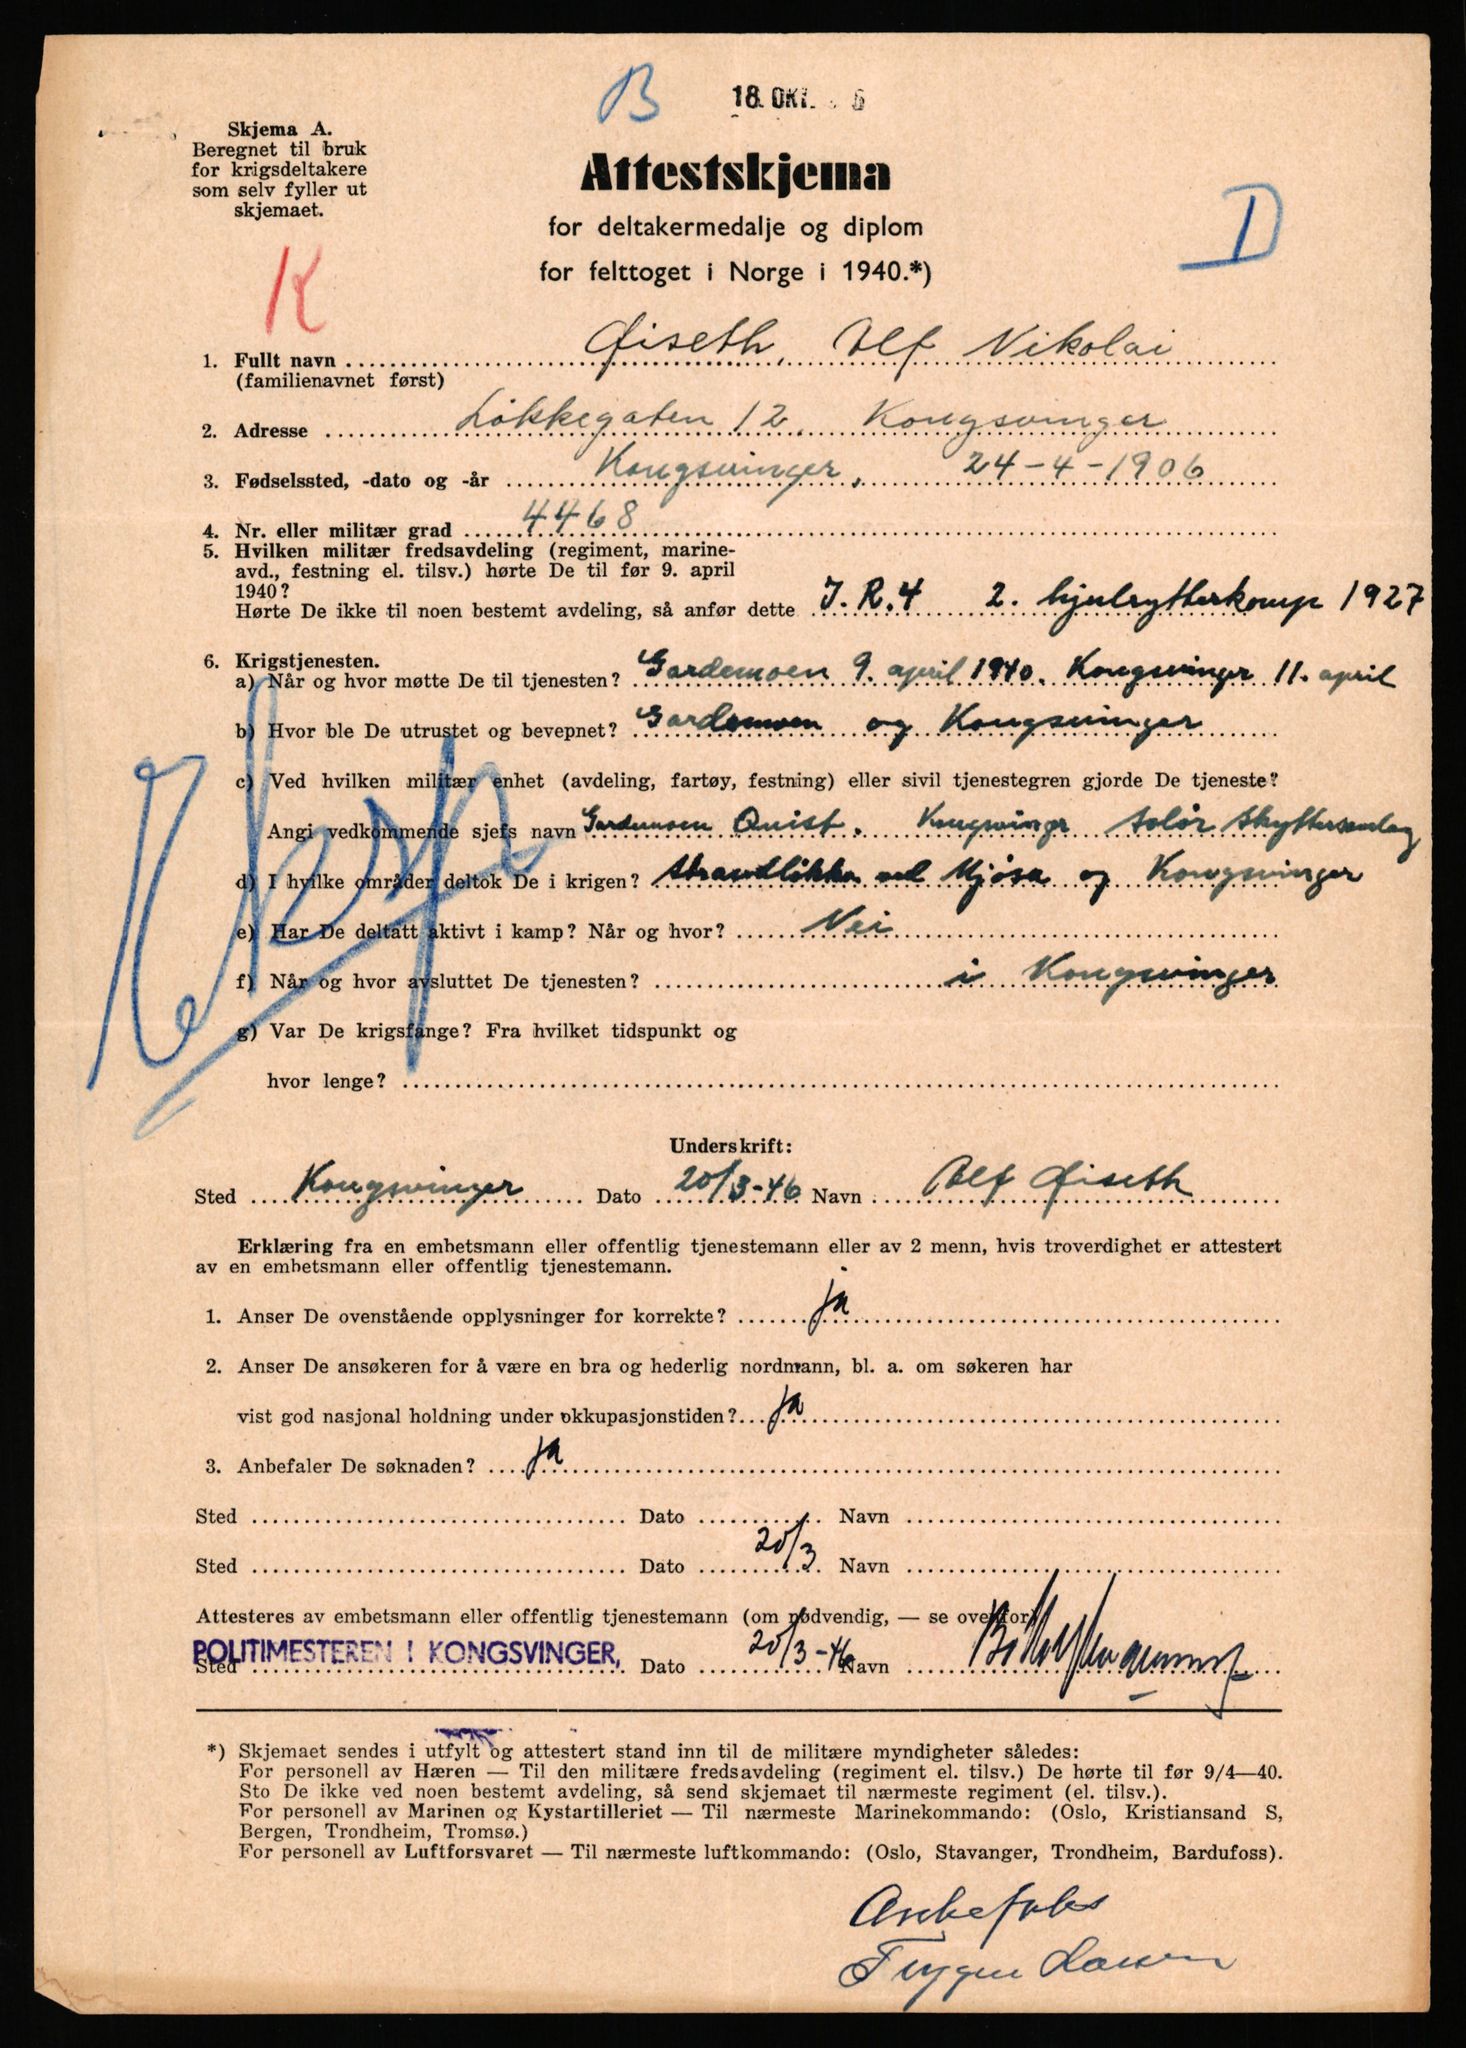 B 18. OKT.
Skjema A.
Beregnet til bruk
for krigsdeltakere
som selv fyller ut
skjemaet.
Attestskjema
for deltakermedalje og diplom
for felttoget i Norge i 1940.*)
D
K
1. Fullt navn Øiseth, Alf Nikolai
(familienavnet først)
2. Adresse Løkkegaten 12, Kongsvinger
3. Fødselssted, -dato og -år Kongsvinger, 24-4-1906
4. Nr. eller militær grad 4468
5. Hvilken militær fredsavdeling (regiment, marine-
avd., festning el. tilsv.) hørte De til før 9. april
1940?
Hørte De ikke til noen bestemt avdeling, så anfør dette I.R.4 2. hjulrytterkomp 1927
6. Krigstjenesten.
a) Når og hvor møtte De til tjenesten? Gardemoen 9. april 1940. Kongsvinger 11. april
b) Hvor ble De utrustet og bevepnet? Gardemoen og Kongsvinger
c) Ved hvilken militær enhet (avdeling, fartøy, festning) eller sivil tjenestegren gjorde De tjeneste?
Angi vedkommende sjefs navn Gardemoen Quist. Kongsvinger Solør Skyttersamlag
d) I hvilke områder deltok De i krigen? Strandløkka ved Mjøsa og Kongsvinger
e) Har De deltatt aktivt i kamp? Når og hvor? Nei
f) Når og hvor avsluttet De tjenesten? i Kongsvinger
g) Var De krigsfange? Fra hvilket tidspunkt og
hvor lenge?
Underskrift:
Sted Kongsvinger Dato 20/3-46 Navn Alf Øiseth
Erklæring fra en embetsmann eller offentlig tjenestemann eller av 2 menn, hvis troverdighet er attestert
av en embetsmann eller offentlig tjenestemann.
1. Anser De ovenstående opplysninger for korrekte? ja
2. Anser De ansøkeren for å være en bra og hederlig nordmann, bl. a. om søkeren har
vist god nasjonal holdning under okkupasjonstiden? ja
3. Anbefaler De søknaden? ja
Sted Dato Navn
Sted Dato 20/3 Navn
Attesteres av embetsmann eller offentlig tjenestemann (om nødvendig, — se ovenfor)
POLITIMESTEREN I KONGSVINGER,
Sted Dato 20/3-46 Navn
*) Skjemaet sendes i utfylt og attestert stand inn til de militære myndigheter således:
For personell av Hæren — Til den militære fredsavdeling (regiment el. tilsv.) De hørte til før 9/4—40.
Sto De ikke ved noen bestemt avdeling, så send skjemaet til nærmeste regiment (el. tilsv.).
For personell av Marinen og Kystartilleriet — Til nærmeste Marinekommando: (Oslo, Kristiansand S,
Bergen, Trondheim, Tromsø.)
For personell av Luftforsvaret — Til nærmeste luftkommando: (Oslo, Stavanger, Trondheim, Bardufoss).
Anbefales